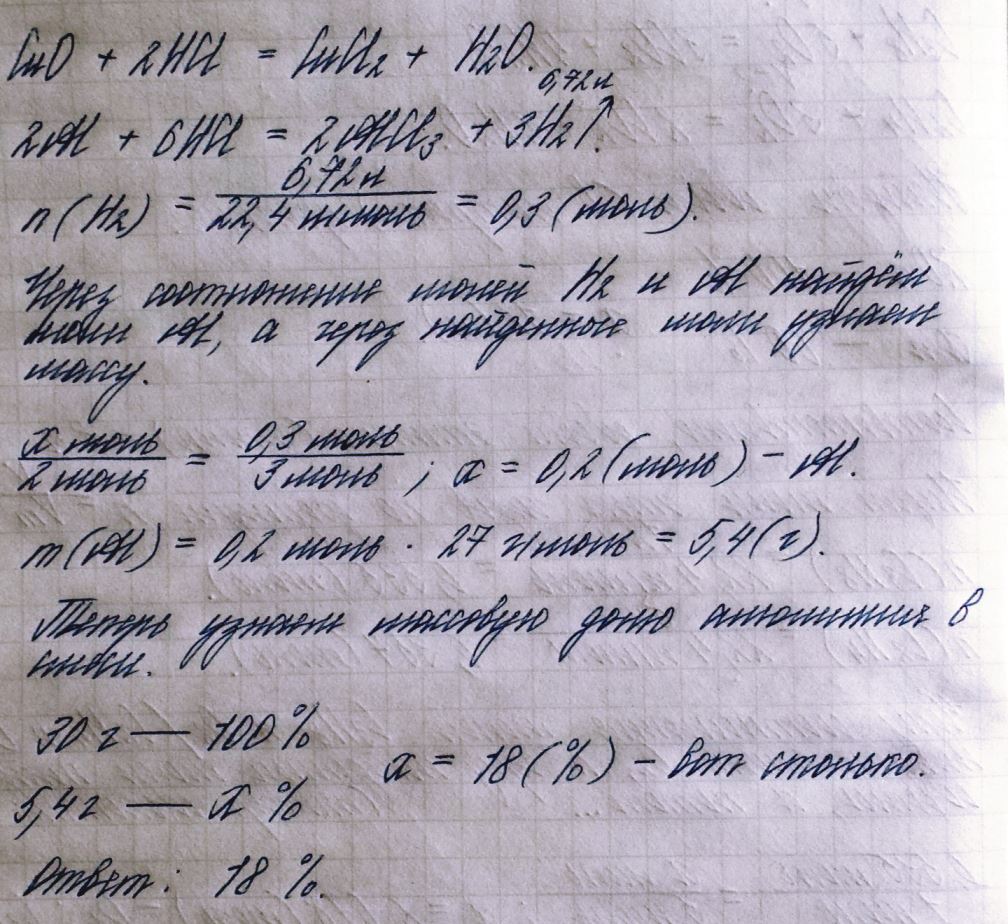 CuO + 2HCl = CuCl₂ + H₂O.
6,72л
2Al + 6HCl = 2AlCl₃ + 3H₂↑.
n(H₂) = 6,72л / 22,4 л/моль = 0,3 (моль).
Через соотношение молей H₂ и Al найдём
моли Al, а через найденные моли узнаем
массу.
x моль / 2 моль = 0,3 моль / 3 моль ; x = 0,2 (моль) – Al.
m(Al) = 0,2 моль · 27 г/моль = 5,4 (г).
Теперь узнаем массовую долю алюминия в
смеси.
30 г — 100 %
x = 18 (%) – вот столько.
5,4 г — x %
Ответ: 18 %.